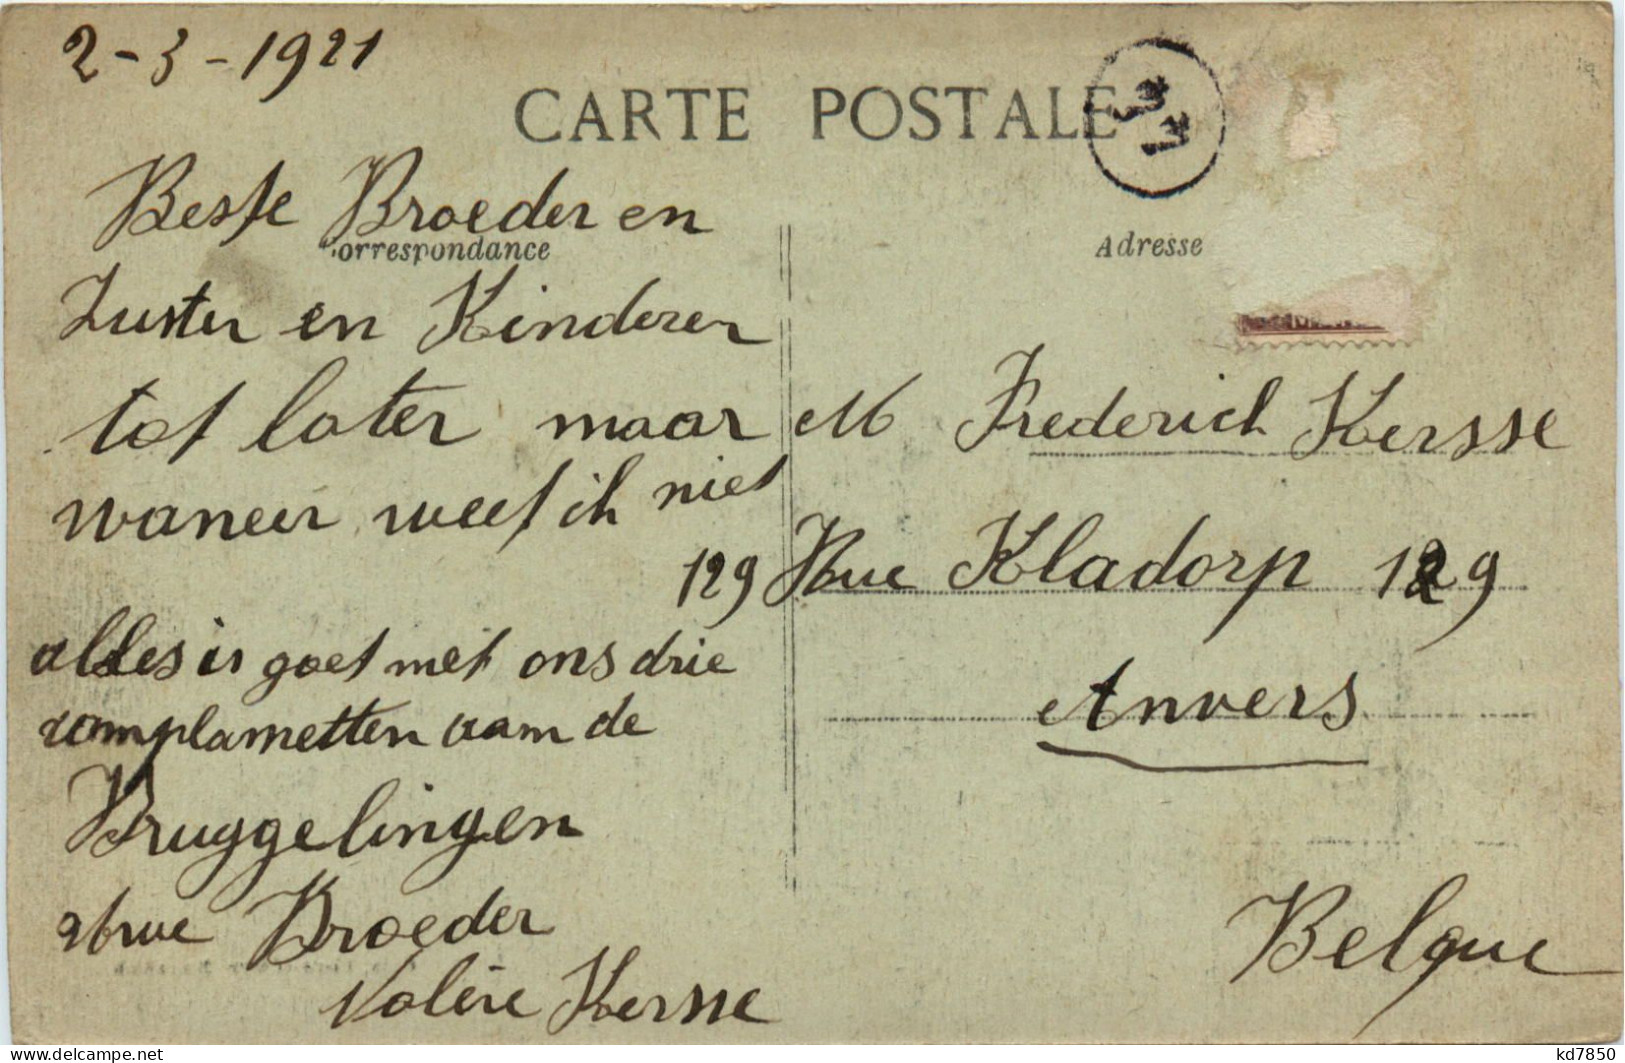 2-3-1921
CARTE POSTALE
Beste Broeder en
Correspondance
Zuster en Kinderen
tot later maar
waneer weet ik niet
alles is goet met ons drie
complametten aan de
Bruggelingen
uwe Broeder
Valère Kersse
Adresse
M Frederich Kersse
129 Rue Kladorp 129
Anvers
Belque
delcampe.net
kd7850